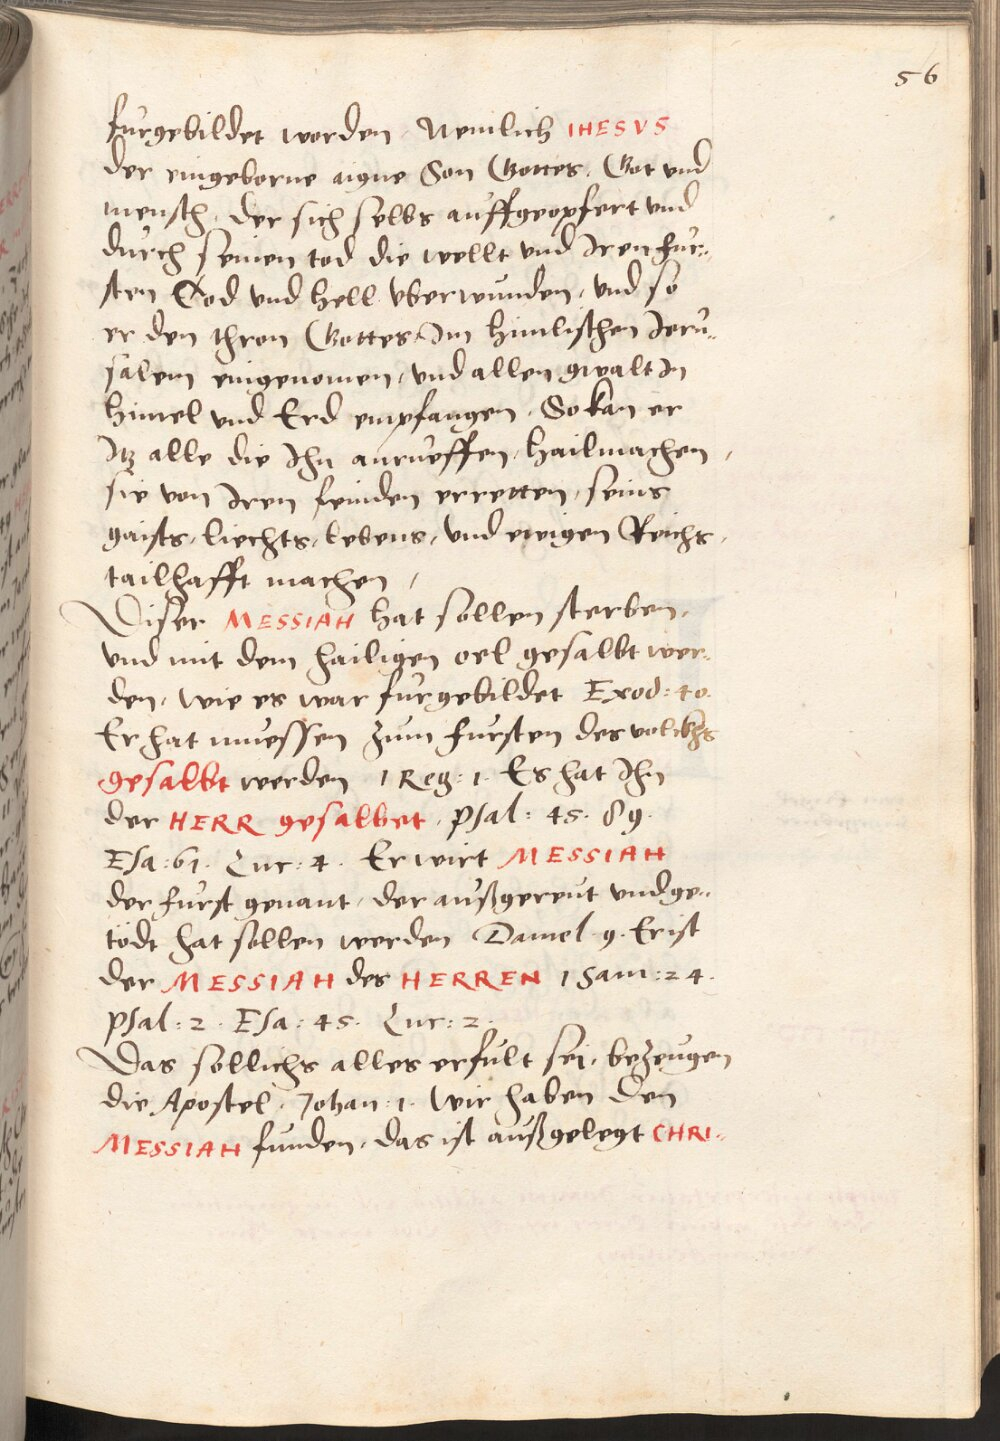 56
furgebildet worden. Nemlich IHESVS
der eingeborne aigne Son Gottes, Got vnd
mensch, der sich selbs auffgeopfert vnd
durch seinen tod die wellt vnd Iren fur-
sten Tod vnd hell vberwunden, vnd so
er den thron Gottes Im himlischen Jeru-
salem eingenomen, vnd allen gwalt In
himel vnd Erd empfangen. So kan er
Itz alle die Ihn anrueffen, hailmachen,
sie von Iren feinden erretten, seins
gaists, liechts, lebens, vnd ewigen Reichs,
tailhafft machen,
Diser MESSIAH hat sollen sterben,
vnd mit dem hailigen oel gesalbt wer-
den, wie es war furgebildet Exod: 40.
Er hat muessen zum fursten des volckhs
gesalbt werden 1 Reg: 1. Es hat Ihn
der HERR gesalbet. psal: 45. 89.
Esa: 61. Luc: 4. Er wirt MESSIAH
der furst genant, der außgereut vnd ge-
tödt hat sollen werden Daniel 9. Er ist
der MESSIAH des HERREN 1 Sam: 24.
psal: 2. Esa: 45. Luc: 2.
Das sollichs alles erfult sei, bezeugen
die Apostel. Johan: 1. Wir haben den
MESSIAH funden, das ist außgelegt CHRI-